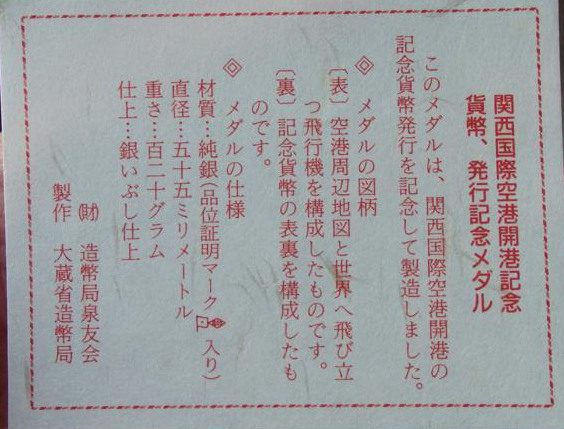 関西国際空港開港記念
貨幣、発行記念メダル
このメダルは、関西国際空港開港の
記念貨幣発行を記念して製造しました。
◈ メダルの図柄
〔表〕空港周辺地図と世界へ飛び立
つ飛行機を構成したものです。
〔裏〕記念貨幣の表裏を構成したも
のです。
◈ メダルの仕様
材質…純銀(品位証明マーク 入り)
直径…五十五ミリメートル
重さ…百二十グラム
仕上…銀いぶし仕上
㈶ 造幣局泉友会
製作 大蔵省造幣局